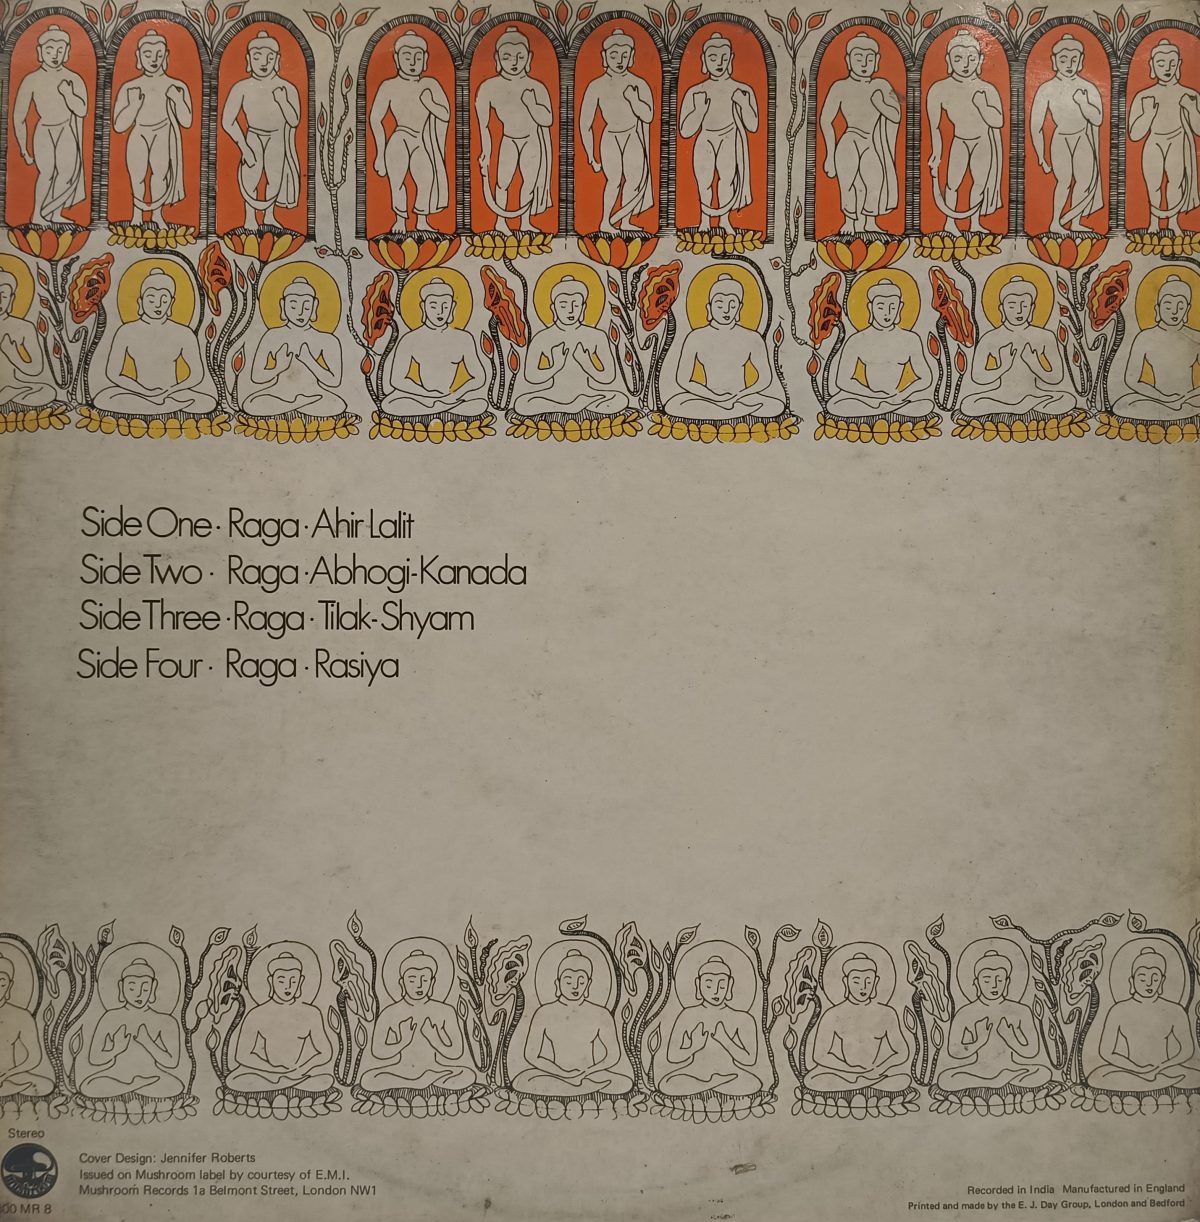 Side One · Raga · Ahir Lalit
Side Two · Raga · Abhogi-Kanada
Side Three · Raga · Tilak-Shyam
Side Four · Raga · Rasiya
Stereo
Cover Design: Jennifer Roberts
Issued on Mushroom label by courtesy of E.M.I.
Mushroom Records 1a Belmont Street, London NW1
00 MR 8
Recorded in India Manufactured in England
Printed and made by the E. J. Day Group, London and Bedford